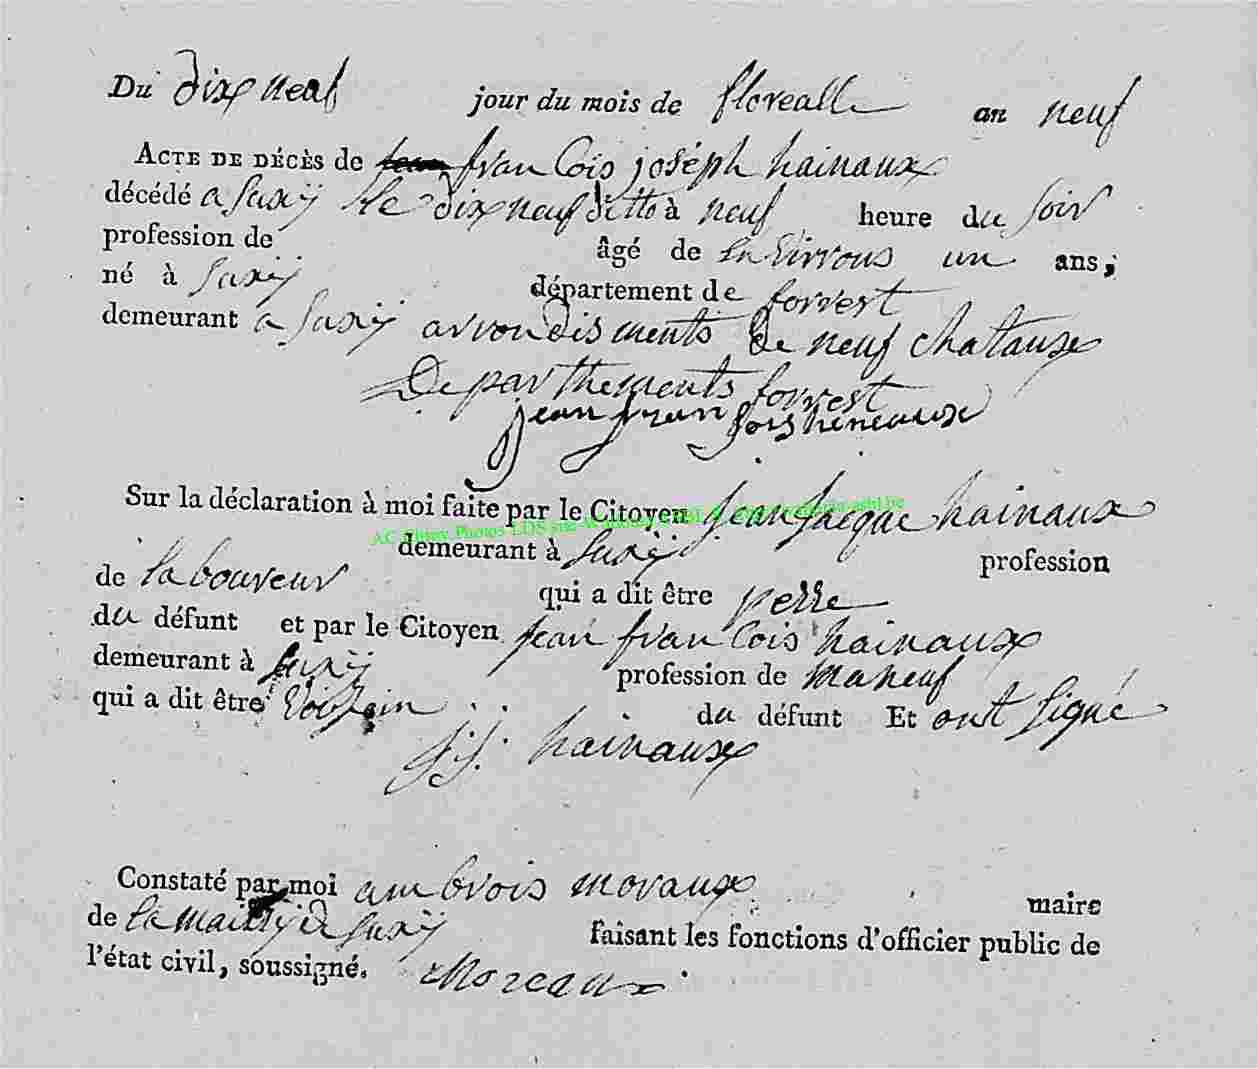 Du dix neaf jour du mois de floreall an neuf
ACTE DE DÉCÈS de fran Cois joséph hainaux
décédé a Suxÿ le dix neuf ditto à neuf heure du soir
profession de âgé de en Virrons un ans,
né à Suxÿ département de forrest
demeurant a Suxÿ arrondisments de neuf chataux
Departhements forrest
jean fran sois heneaux
Sur la déclaration à moi faite par le Citoyen jean Jacque hainaux
AC Photos LDS
demeurant à Suxÿ profession
de la boureur qui a dit être perre
du défunt et par le Citoyen jean fran Cois hainaux
demeurant à Suxÿ profession de maneuf
qui a dit être Voissin du défunt Et ont signé
j. j. hainaux
Constaté par moi am brois moraux maire
de la mairÿ de Suxÿ faisant les fonctions d'officier public de
l'état civil, soussigné. Moreaux